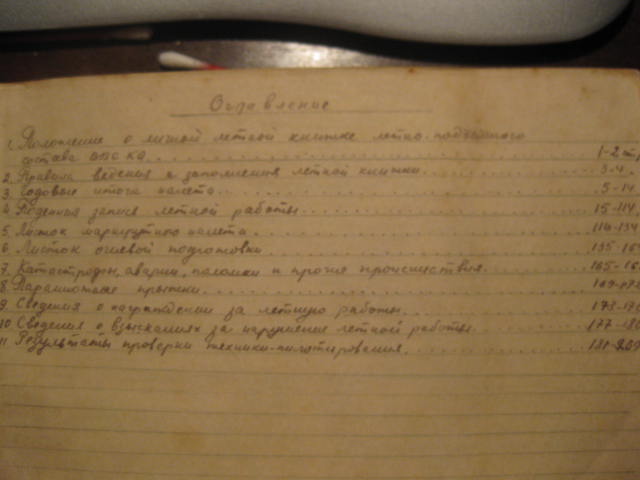 Оглавление
1. Положение о личной летной книжке летно-подъемного
состава ВВС КА 1-2 ст
2. Правила ведения и заполнения летной книжки 3-4
3. Годовые итоги налета 5-14
4. Поденная запись летной работы 15-114
5. Листок маршрутного налета 114-134
6. Листок огневой подготовки 135-16
7. Катастрофы, аварии, поломки и прочие происшествия 165-16
8. Парашютные прыжки
9. Сведения о награждении за летную работы 173-176
10 Сведения о взысканиях за нарушение летной работы 177-180
11 Результаты проверки техники-пилотирования. 181-209